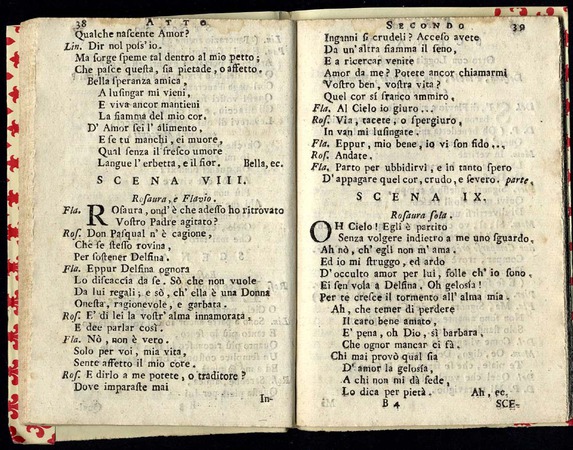 38 ATTO
Qualche nascente Amor?
Lin. Dir nol poss' io.
Ma sorge speme tal dentro al mio petto;
Che pasce questa, sia pietade, o affetto.
Bella speranza amica,
A lusingar mi vieni,
E viva ancor mantieni
La fiamma del mio cor.
D' Amor sei l' alimento,
E se tu manchi, ei muore,
Qual senza il fresco umore
Langue l' erbetta, e il fior. Bella, ec.
SCENA VIII.
Rosaura, e Flavio.
Fla. ROsaura, ond' è che adesso ho ritrovato
Vostro Padre agitato?
Ros. Don Pasqual n' è cagione,
Che se stesso rovina,
Per sostener Delfina.
Fla. Eppur Delfina ognora
Lo discaccia da se. Sò che non vuole
Da lui regali; e sò, ch' ella è una Donna
Onesta, ragionevole, e garbata.
Ros. E' di lei la vostr' alma innamorata,
E dee parlar così.
Fla. Nò, non è vero.
Solo per voi, mia vita,
Sente affetto il mio core.
Ros. E dirlo a me potete, o traditore?
Dove imparaste mai
In-
SECONDO 39
Inganni sì crudeli? Acceso avete
Da un' altra fiamma il seno,
E a ricercar venite
Amor da me? Potete ancor chiamarmi
Vostro ben, vostra vita?
Quel cor sì franco ammiro.
Fla. Al Cielo io giuro...
Ros. Via, tacete, o spergiuro,
In van mi lusingate.
Fla. Eppur, mio bene, io vi son fido...
Ros. Andate.
Fla. Parto per ubbidirvi, e in tanto spero
D' appagare quel cor, crudo, e severo. parte.
SCENA IX.
Rosaura sola.
OH Cielo! Egli è partito
Senza volgere indietro a me uno sguardo.
Ah nò, ch' egli non m' ama.
Ed io mi struggo, ed ardo
D' occulto amor per lui, folle ch' io sono.
Ei sen vola a Delfina. Oh gelosia!
Per te cresce il tormento all' alma mia.
Ah, che temer di perdere
Il caro bene amato,
E' pena, oh Dio, sì barbara,
Che ognor mancar ci fà.
Chi mai provò qual sia
D' amor la gelosia,
A chi non mi dà fede,
Lo dica per pietà. Ah, ec.
B 4 SCE-